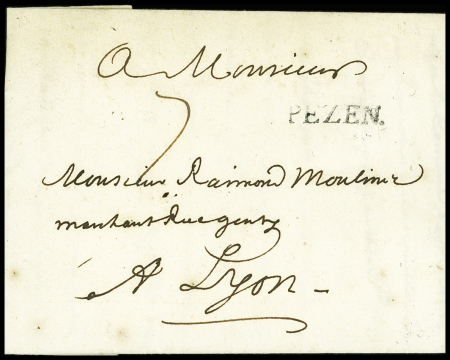 A Monsieur
7
PEZEN.
Monsieur Raimond Moulinie
marchant Rue genty
A Lyon